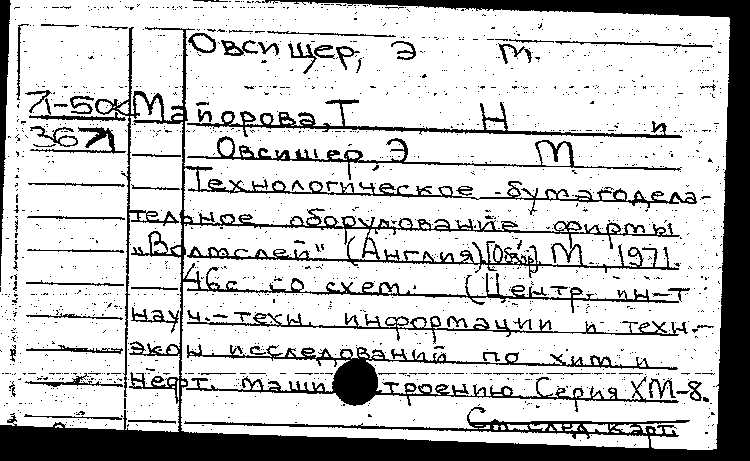 Овсищер, Э М.
Л-50к Майорова, Т Н и
3671 Овсищер, Э М
Технологическое бумагодела-
тельное оборудование фирмы
„Волтмслей" (Англия) [Обзор] М., 1971.
46с со схем. (Центр. ин-т
науч.-техн. информации и техн.-
экон. исследований по хим. и
нефт. машиностроению. Серия ХМ-8.
См. след. карт